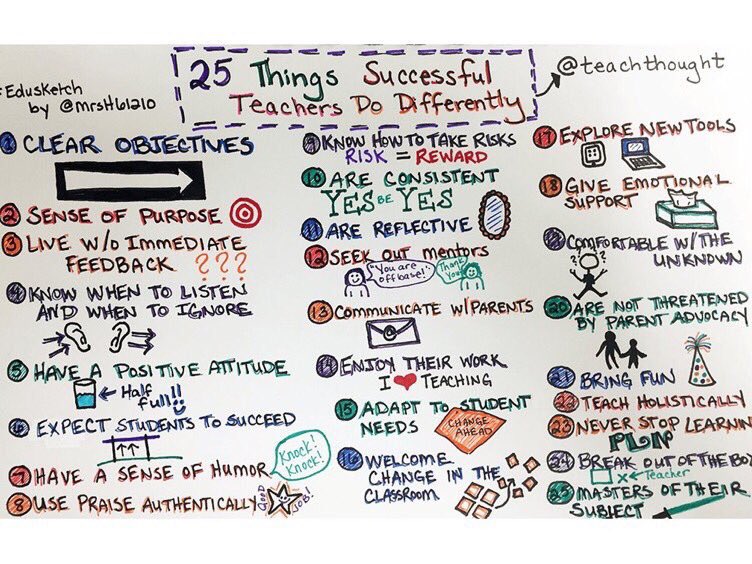 25 Things Successful
Teachers Do Differently
@teachthought
EduSketch
by @mrsH61210
1 CLEAR OBJECTIVES
2 SENSE OF PURPOSE
3 LIVE W/O IMMEDIATE
FEEDBACK ???
4 KNOW WHEN TO LISTEN
AND WHEN TO IGNORE
5 HAVE A POSITIVE ATTITUDE
Half
full!!
6 EXPECT STUDENTS TO SUCCEED
7 HAVE A SENSE OF HUMOR
Knock!
Knock!
8 USE PRAISE AUTHENTICALLY
GOOD
JOB!
9 KNOW HOW TO TAKE RISKS
RISK = REWARD
10 ARE CONSISTENT
YES BE YES
11 ARE REFLECTIVE
12 SEEK OUT mentors
"You are
off base!"
Thank
You!
13 COMMUNICATE W/PARENTS
14 ENJOY THEIR WORK
I ❤ TEACHING
15 ADAPT TO STUDENT
NEEDS
CHANGE
AHEAD
16 WELCOME
CHANGE IN THE
CLASSROOM
17 EXPLORE NEW TOOLS
18 GIVE EMOTIONAL
SUPPORT
COMFORTABLE W/THE
UNKNOWN
???
20 ARE NOT THREATENED
BY PARENT ADVOCACY
21 BRING FUN
22 TEACH HOLISTICALLY
23 NEVER STOP LEARNIN
24 BREAK OUT OF THE BO
x ← Teacher
25 MASTERS OF THEIR
SUBJECT